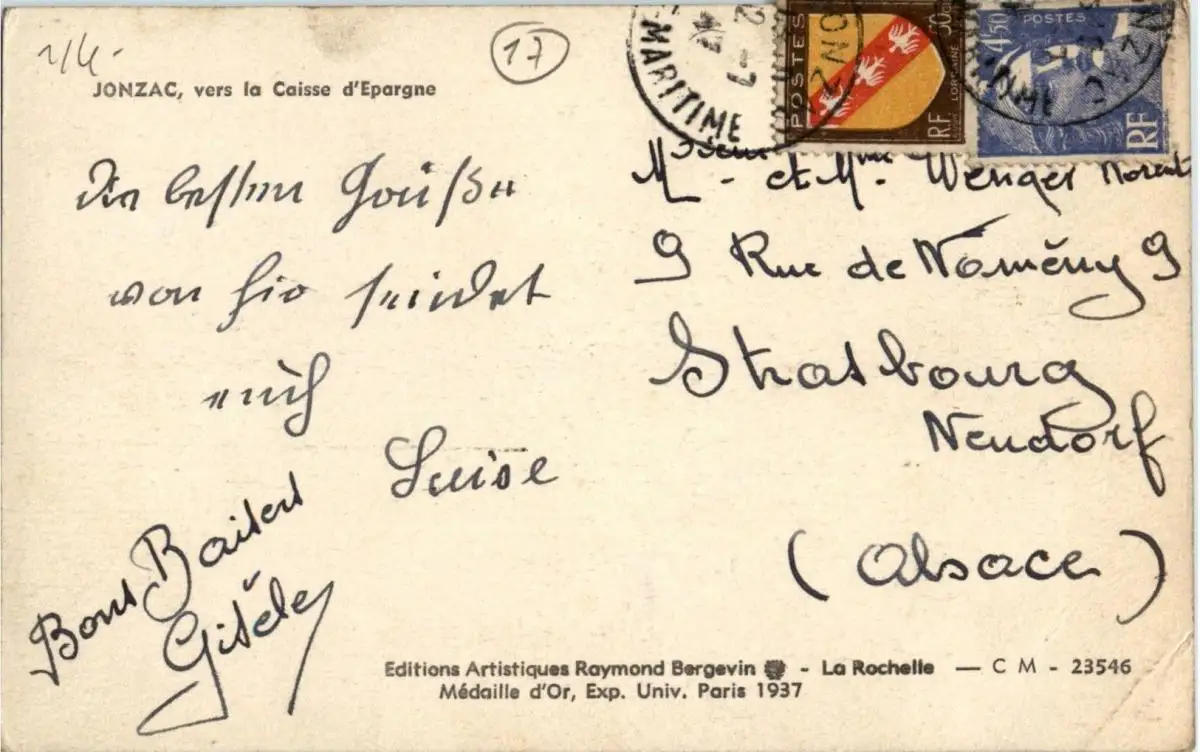 1/4.
17
JONZAC, vers la Caisse d'Epargne
MARITIME
POSTES
50
LORRAINE
RF
4,50
POSTES
RF
MARITIME
Die besten Grüße
von hier sendet
euch
Luise
Bons Baisers
Gisèle
M - et Mme. Wenger
9 Rue de Noměny 9
Strasbourg
Neudorf
(Alsace)
Editions Artistiques Raymond Bergevin - La Rochelle — C M - 23546
Médaille d'Or, Exp. Univ. Paris 1937